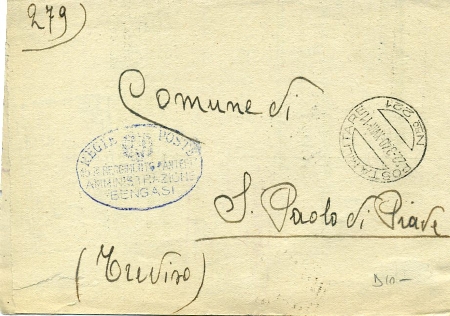 279)
Comune di
REGIE POSTE
AMMINISTRAZIONE
BENGASI
POSTA MILITARE
No. 221
S. Paolo di Piave
(Treviso)